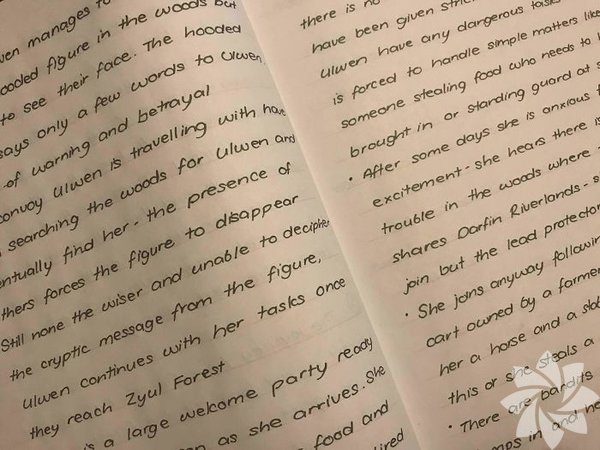 wen manages to
ooded figure in the woods but
to see their face. The hooded
says only a few words to Ulwen
of warning and betrayal
convoy Ulwen is travelling with have
searching the woods for Ulwen and
entually find her - the presence of
thers forces the figure to disappear
Still none the wiser and unable to decipher
the cryptic message from the figure,
Ulwen continues with her tasks once
they reach Zyul Forest
is a large welcome party ready
on as she arrives. She
food and
ired
there is no
have been given stric
Ulwen have any dangerous tasks
is forced to handle simple matters like
someone stealing food who needs to b
brought in or standing guard at s
• After some days she is anxious f
excitement - she hears there is
trouble in the woods where
shares Darfin Riverlands - s
join but the lead protector
• She joins anyway following
cart owned by a farmer
her a horse and a
this or she steals a
• There are bandits
mps in and he